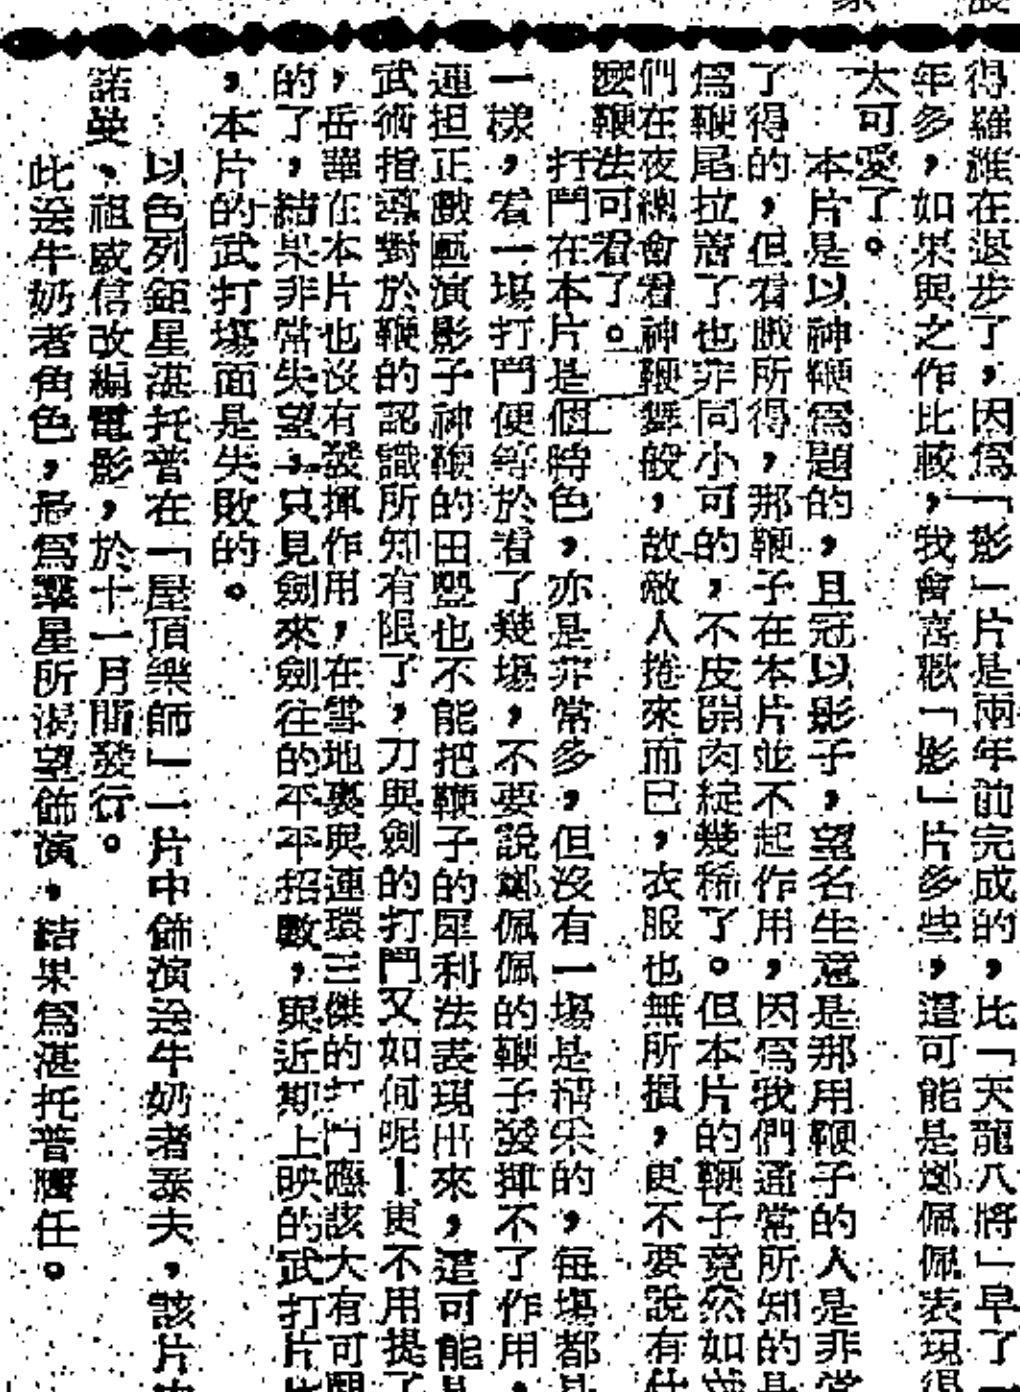 得羅維在退步了，因為「影」一片是兩年前完成的，比「天龍八將」早了一
年多，如果與之作比較，我會喜歡「影」片多些，這可能是鄭佩佩表現得
太可愛了。
本片是以神鞭為題的，且冠以影子，望名生意是那用鞭子的人是非常
了得的，但看戲所得，那鞭子在本片並不起作用，因為我們通常所知的是
為鞭尾拉着了也非同小可的，不皮開肉綻幾稀了。但本片的鞭子竟然如
們在夜總會看神鞭舞般，故敵人捲來而已，衣服也無所損，更不要說有什
麼鞭法可看了。
打鬥在本片是個特色，亦是非常多，但沒有一場是精采的，每場都是
一樣，看一場打鬥便等於看了幾場，不要說鄭佩佩的鞭子發揮不了作用，
連担正戲匭演影子神鞭的田豐也不能把鞭子的犀利法表現出來，這可能是
武術指導對於鞭的認識所知有限了，刀與劍的打鬥又如何呢！更不用提了
，岳華在本片也沒有發揮作用，在雪地裏與連環三傑的打鬥應該大有可觀
的了，結果非常失望，只見劍來劍往的平平招數，與近期上映的武打片比
，本片的武打場面是失敗的。
以色列鉅星湛托普在「屋頂樂師」一片中飾演送牛奶者泰夫，該片由
諾曼、祖威信改編電影，於十一月間發行。
此送牛奶者角色，最為羣星所渴望飾演，結果為湛托普膺任。